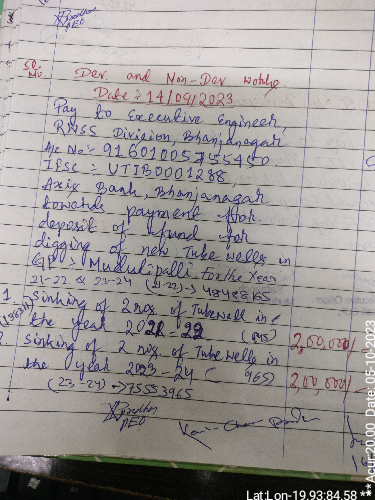 PEO
Sl No
Dev. and Non-Dev works
Date :- 14/09/2023
Pay to Executive Engineer,
RWSS Division, Bhanjanagar
A/c No:- 91601005755450
IFSC :- UTIB0001288,
Axis Bank, Bhanjanagar
towards payment for
deposit of fund for
digging of new Tube wells in
GP :- Mudulipalli for the Year
21-22 & 23-24 (21-22)
1. Sinking of 2 nos. of Tubewell in
the year 2021-22 2,00,000/-
2 Sinking of 2 nos. of Tube wells in
the year 2023-24 ( 965) 2,00,000/-
(23-24) → 75553965
PEO
Lat:Lon-19.93:84.58 **Acur:20.00 Date 05-10-2023